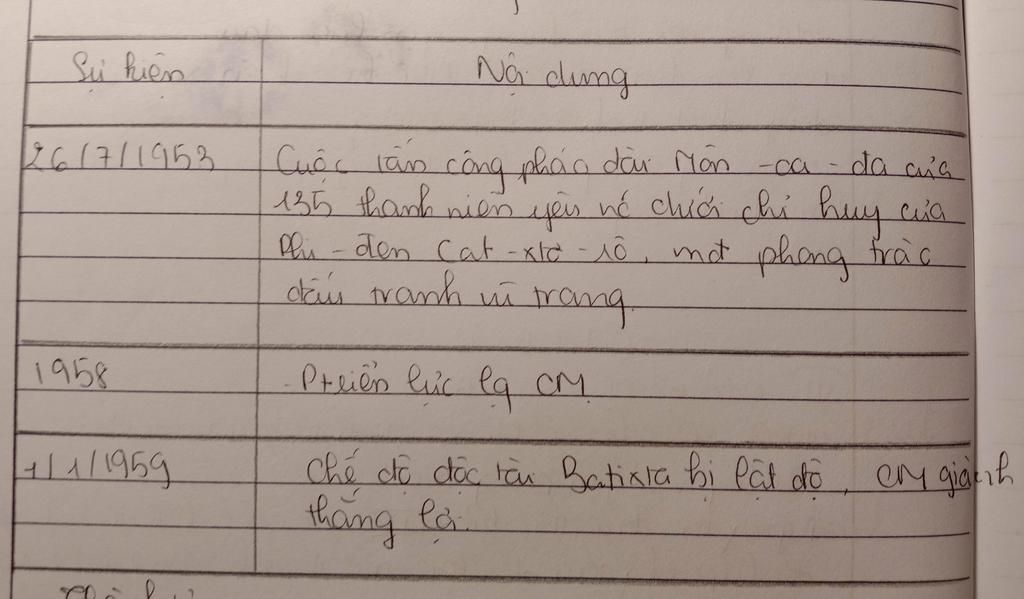 Sự kiện
Nội dung
26/7/1953
Cuộc tấn công pháo đài Môn-ca-đa của
135 thanh niên yêu nước dưới chỉ huy của
Phi-đen Cat-xtơ-rô, mở phong trào
đấu tranh vũ trang.
1958
- Ptriển lực lg CM
1/1/1959
Chế độ độc tài Batixta bị lật đổ, CM giành
thắng lợi.